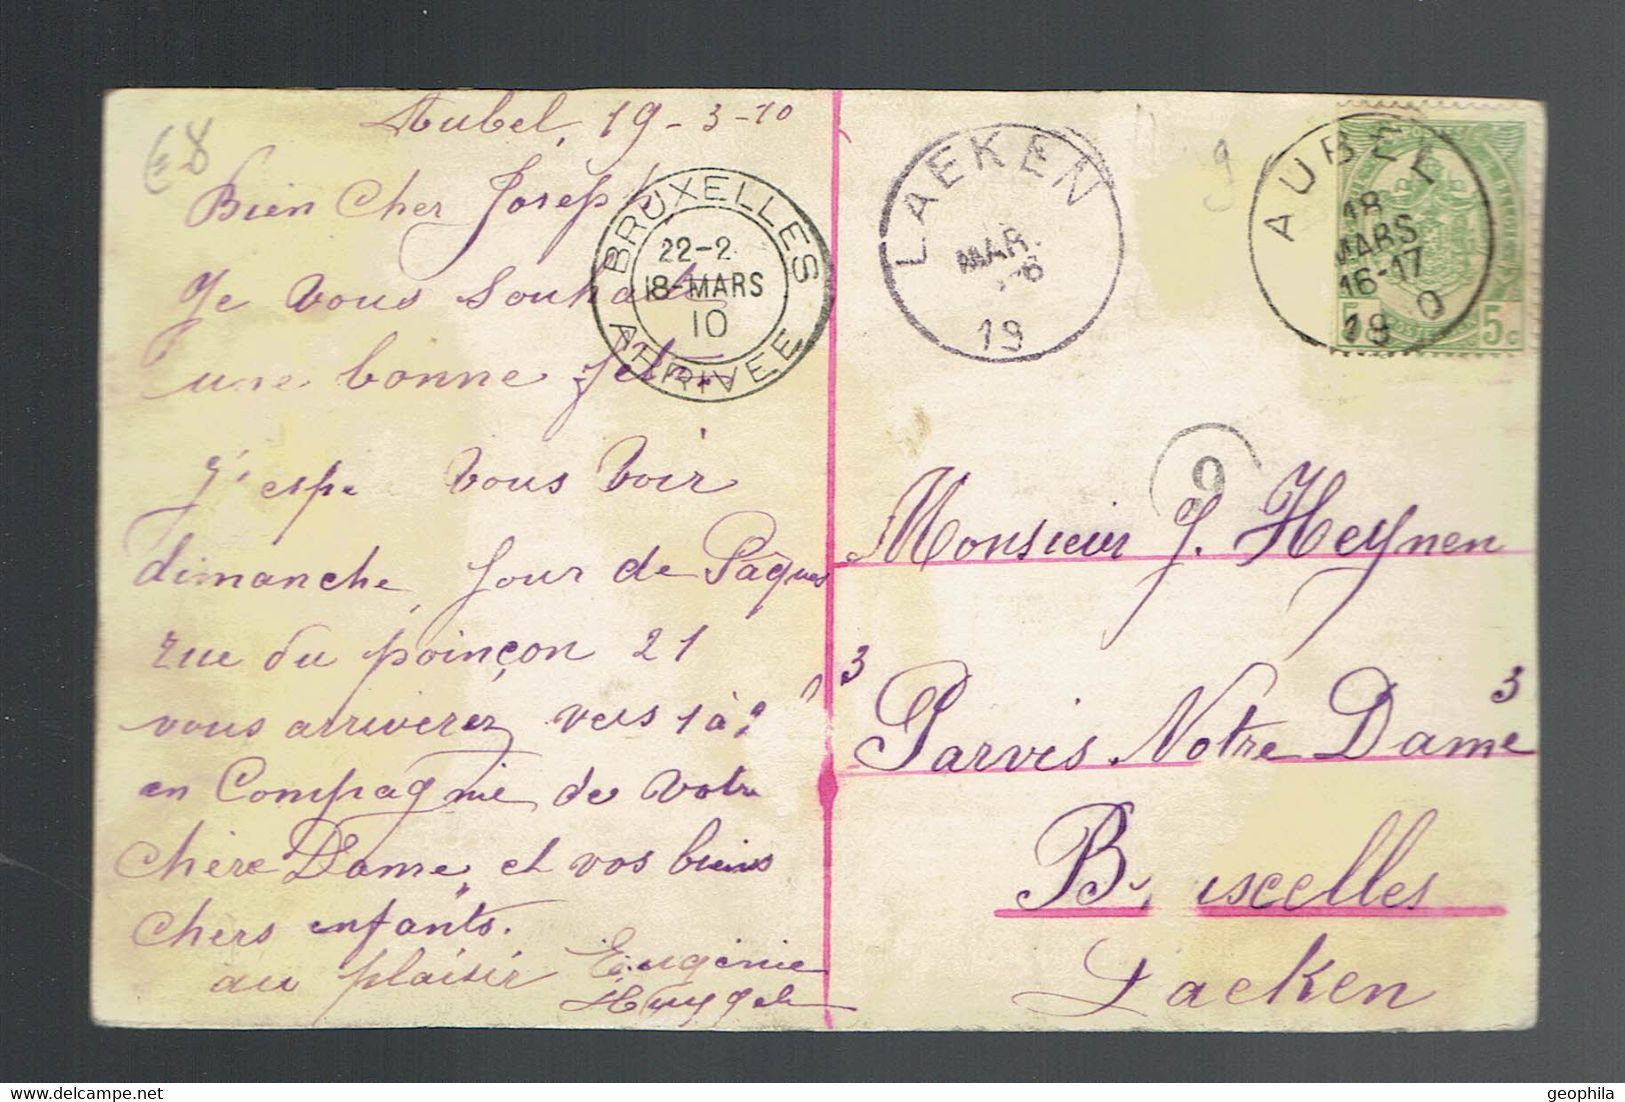 Aubel, 19-3-10
Bien Cher Joseph
Je vous souhaite
une bonne fête
J'espe vous voir
dimanche, jour de Pâques
rue du poinçon 21
vous arriverez vers 1 à 2
en Compagnie de votre
chère Dame, et vos biens
chers enfants.
au plaisir Eugénie
BRUXELLES
22-2
18-MARS
10
ARRIVEE
LAEKEN
MAR.
19
AUBEL
18
MARS
16-17
5c
9
9
Monsieur J. Heynen
3 Parvis Notre Dame 3
Bruxelles
Laeken
geophila